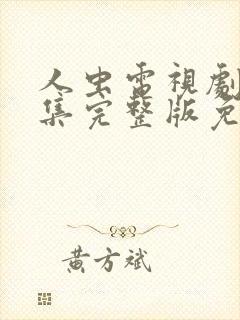 人虫電視劇
集完整版免
黃方斌